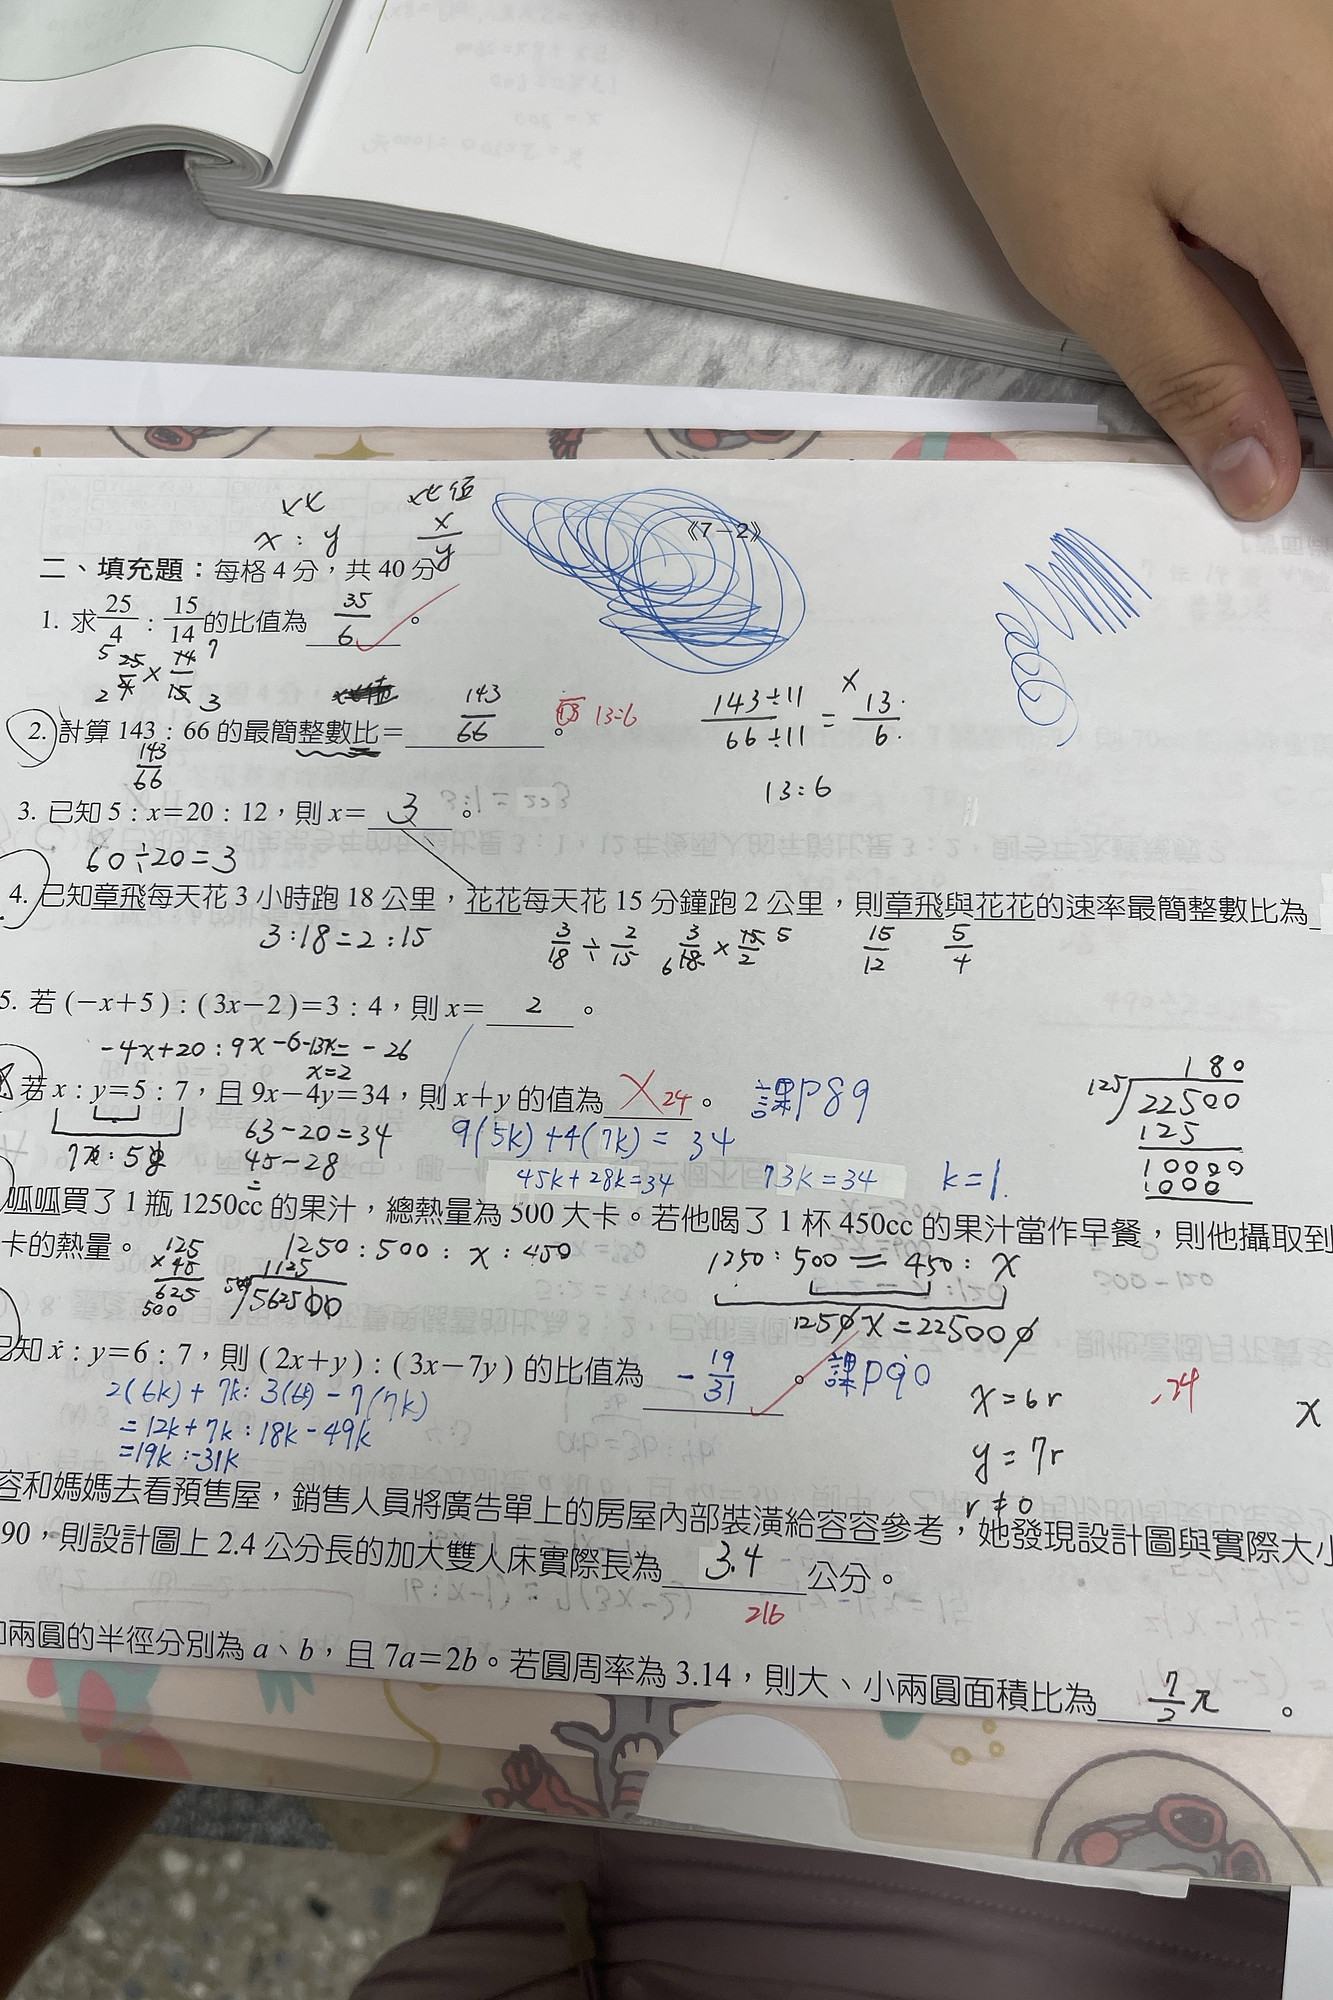 比 比值
x : y x/y
《7-2》
二、填充題：每格 4 分，共 40 分
1. 求 25/4 : 15/14 的比值為 35/6 。
5 25/4 × 14/15 7
2 3
2. 計算 143 : 66 的最簡整數比＝ 143/66 。 13:6
143÷11/66÷11 = 13/6
143/66
13:6
3. 已知 5 : x＝20 : 12，則 x＝ 3 。
60÷20=3
4. 已知章飛每天花 3 小時跑 18 公里，花花每天花 15 分鐘跑 2 公里，則章飛與花花的速率最簡整數比為
3:18=2:15 3/18 ÷ 2/15 3/18 × 15/2 5 15/12 5/4
6
5. 若 (－x＋5) : (3x－2)＝3 : 4，則 x＝ 2 。
-4x+20 : 9x-6 -13x= -26
x=2
若 x : y＝5 : 7，且 9x－4y＝34，則 x＋y 的值為 24 。 課P89
63-20=34 9(5k)+4(7k)= 34
45-28
45k+28k=34 73k=34 k=1.
180
125 22500
125
10000
1000
呱呱買了 1 瓶 1250cc 的果汁，總熱量為 500 大卡。若他喝了 1 杯 450cc 的果汁當作早餐，則他攝取到
卡的熱量。 1250:500: x:450 1250:500 = 450: x
125
×45
625
500
1125
562500
12500x=225000
已知 x : y＝6 : 7，則 (2x＋y) : (3x－7y) 的比值為 -19/31 。 課P90
2(6k)+ 7k: 3(6k) - 7(7k)
=12k+7k : 18k-49k
=19k:-31k
x=6r
y=7r
r≠0
24
x
容和媽媽去看預售屋，銷售人員將廣告單上的房屋內部裝潢給容容參考，她發現設計圖與實際大小
90，則設計圖上 2.4 公分長的加大雙人床實際長為 3.4 公分。
216
兩圓的半徑分別為 a、b，且 7a＝2b。若圓周率為 3.14，則大、小兩圓面積比為 7/2π 。